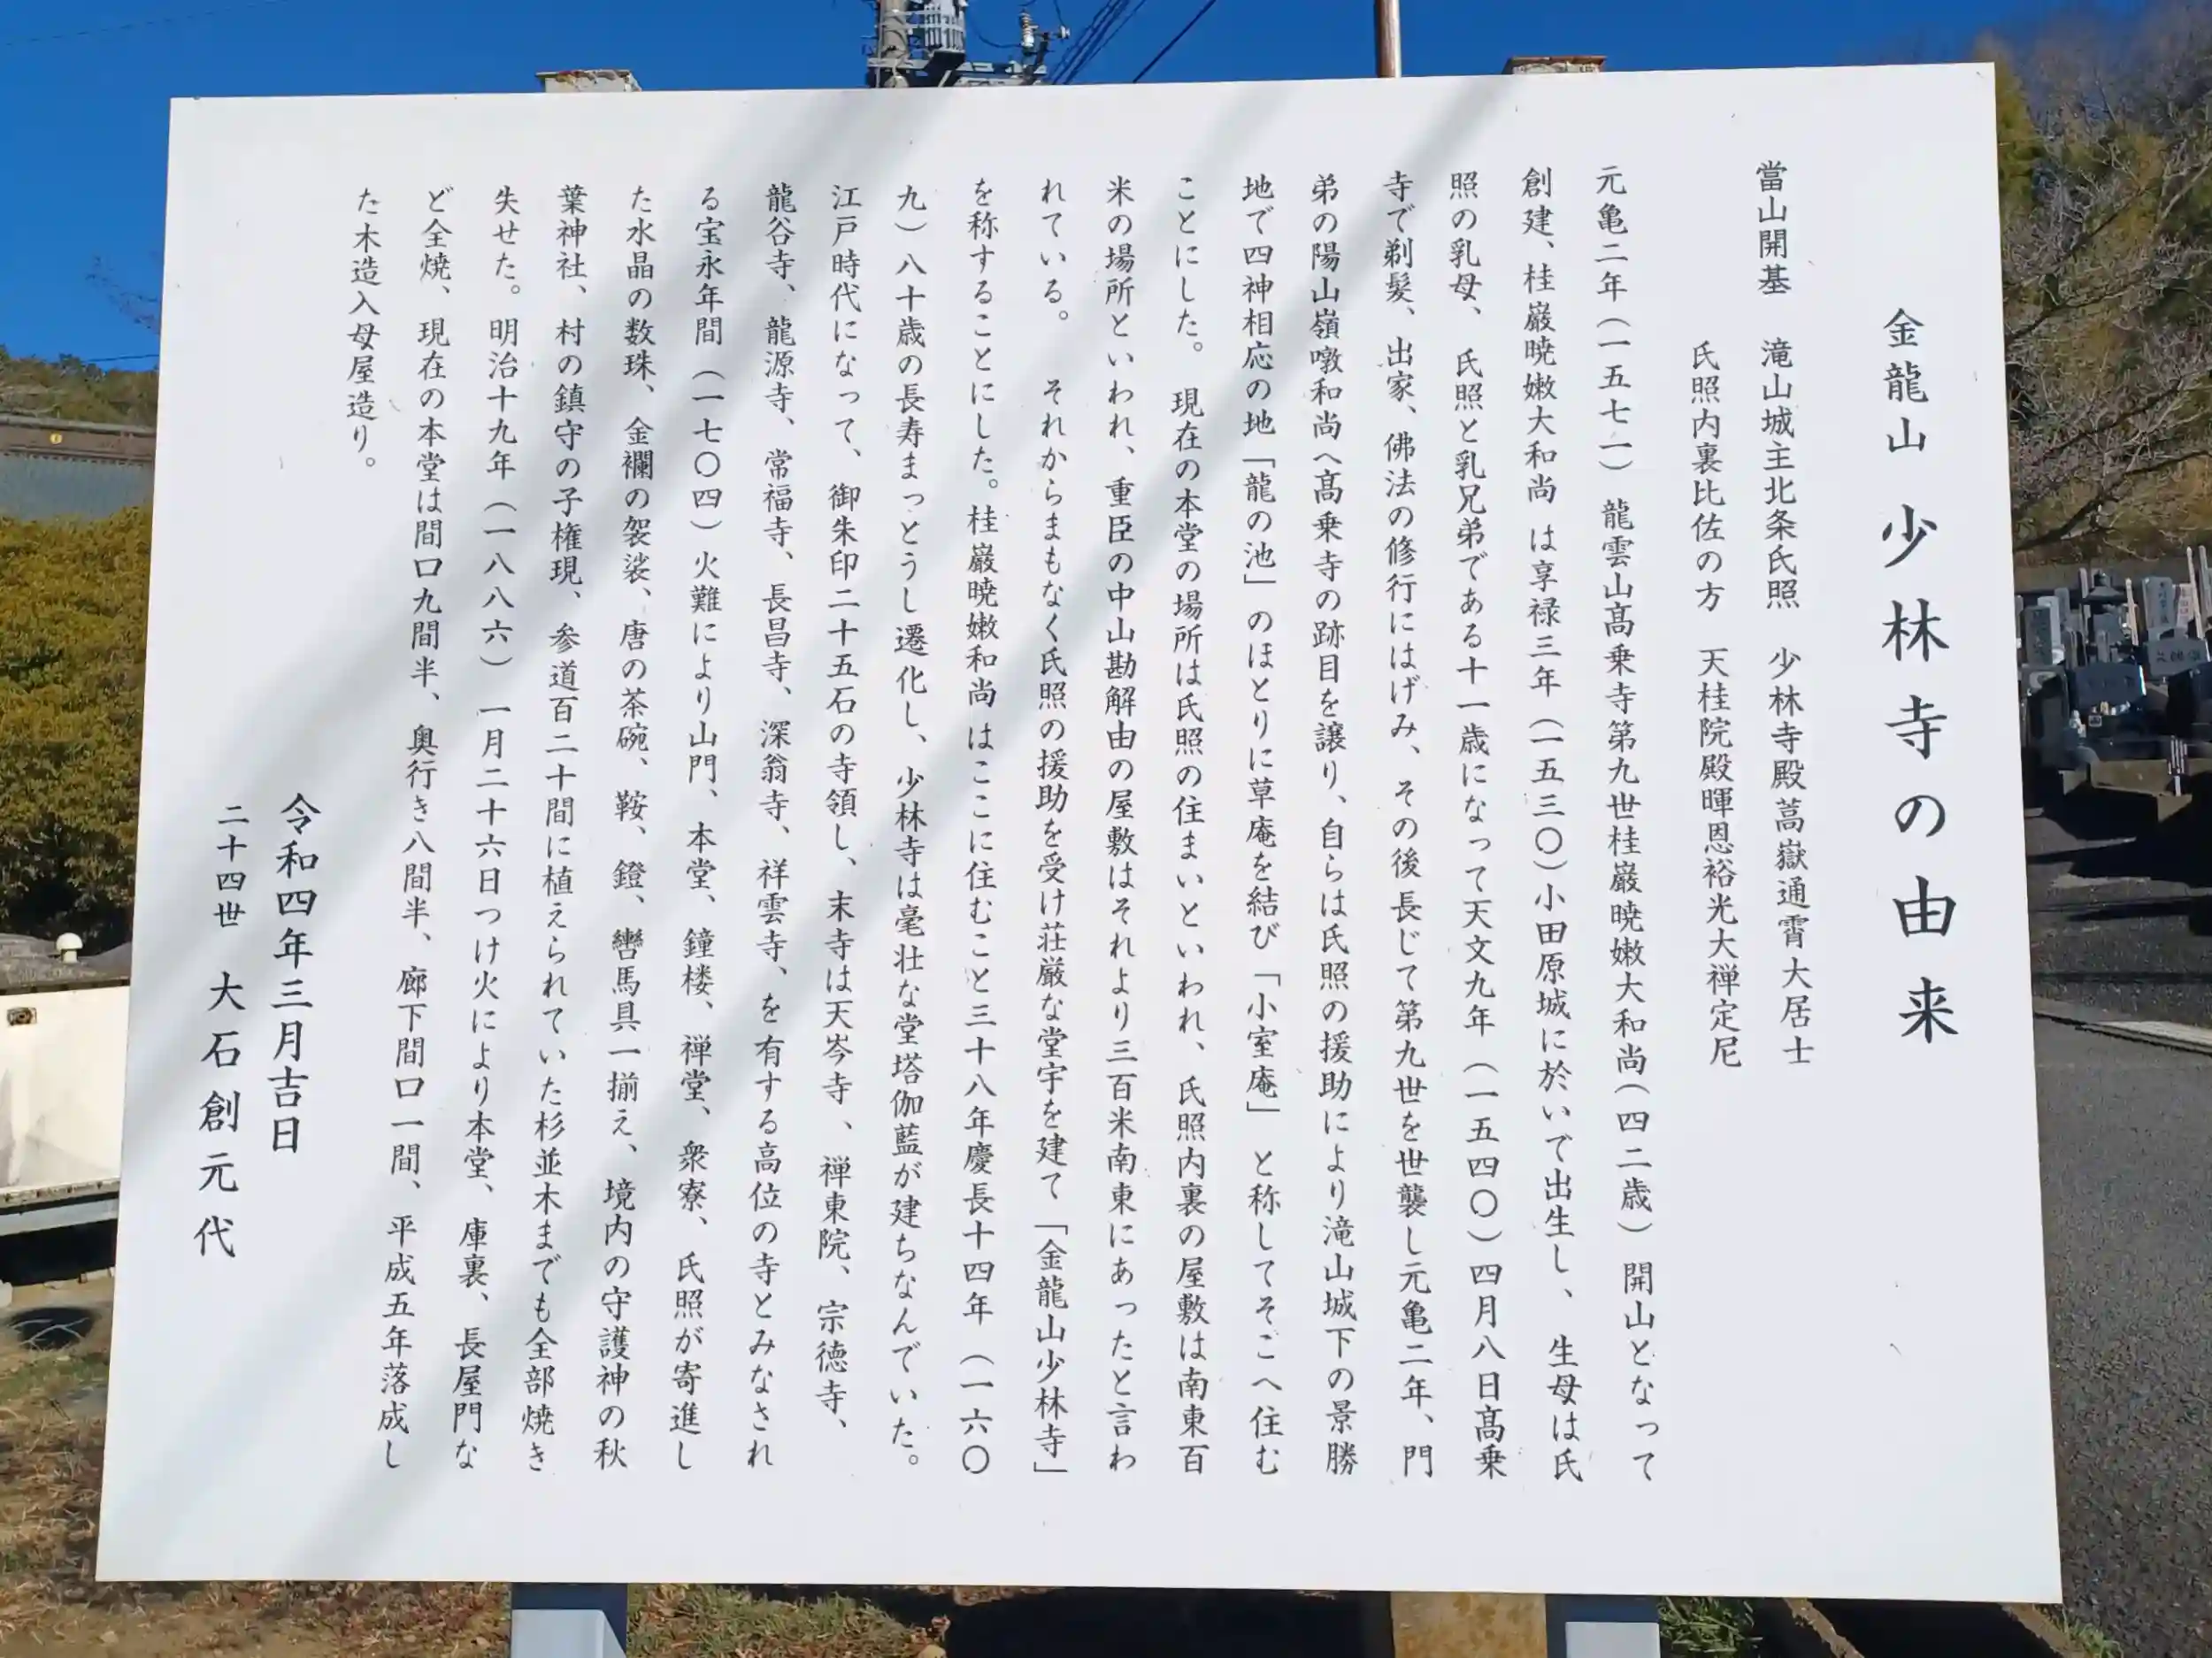 金龍山 少林寺の由来
當山開基 滝山城主北条氏照 少林寺殿蒿嶽通霄大居士
氏照内裏比佐の方 天桂院殿暉恩裕光大禅定尼
元亀二年(一五七一)龍雲山髙乗寺第九世桂巖暁嫩大和尚(四二歳)開山となって
創建、桂巖暁嫩大和尚は享禄三年(一五三〇)小田原城に於いで出生し、生母は氏
照の乳母、氏照と乳兄弟である十一歳になって天文九年(一五四〇)四月八日髙乗
寺で剃髪、出家、佛法の修行にはげみ、その後長じて第九世を世襲し元亀二年、門
弟の陽山嶺暾和尚へ髙乗寺の跡目を譲り、自らは氏照の援助により滝山城下の景勝
地で四神相応の地「龍の池」のほとりに草庵を結び「小室庵」と称してそこへ住む
ことにした。現在の本堂の場所は氏照の住まいといわれ、氏照内裏の屋敷は南東百
米の場所といわれ、重臣の中山勘解由の屋敷はそれより三百米南東にあったと言わ
れている。それからまもなく氏照の援助を受け荘厳な堂宇を建て「金龍山少林寺」
を称することにした。桂巖暁嫩和尚はここに住むこと三十八年慶長十四年(一六〇
九)八十歳の長寿まっとうし遷化し、少林寺は毫壮な堂塔伽藍が建ちなんでいた。
江戸時代になって、御朱印二十五石の寺領し、末寺は天岑寺、禅東院、宗徳寺、
龍谷寺、龍源寺、常福寺、長昌寺、深翁寺、祥雲寺、を有する高位の寺とみなされ
る宝永年間(一七〇四)火難により山門、本堂、鐘楼、禅堂、衆寮、氏照が寄進し
た水晶の数珠、金襴の袈裟、唐の茶碗、鞍、鐙、轡馬具一揃え、境内の守護神の秋
葉神社、村の鎮守の子権現、参道百二十間に植えられていた杉並木までも全部焼き
失せた。明治十九年(一八八六)一月二十六日つけ火により本堂、庫裏、長屋門な
ど全焼、現在の本堂は間口九間半、奥行き八間半、廊下間口一間、平成五年落成し
た木造入母屋造り。
令和四年三月吉日
二十四世 大石創元代